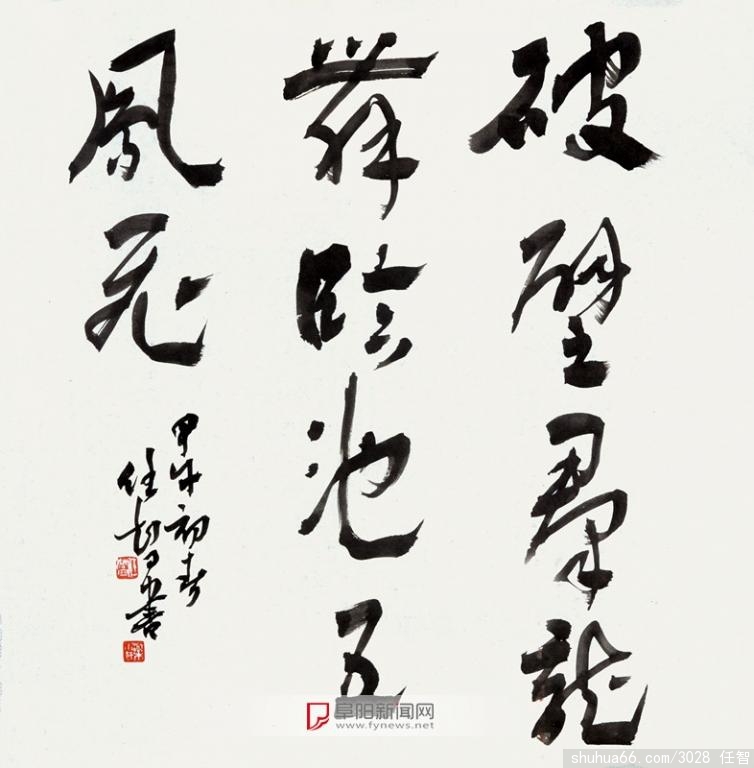 破壁群龍
舞臨池五
鳳飛
甲午初春
任智書
阜阳新闻网
www.fynews.net
shuhua66.com/3028 任智